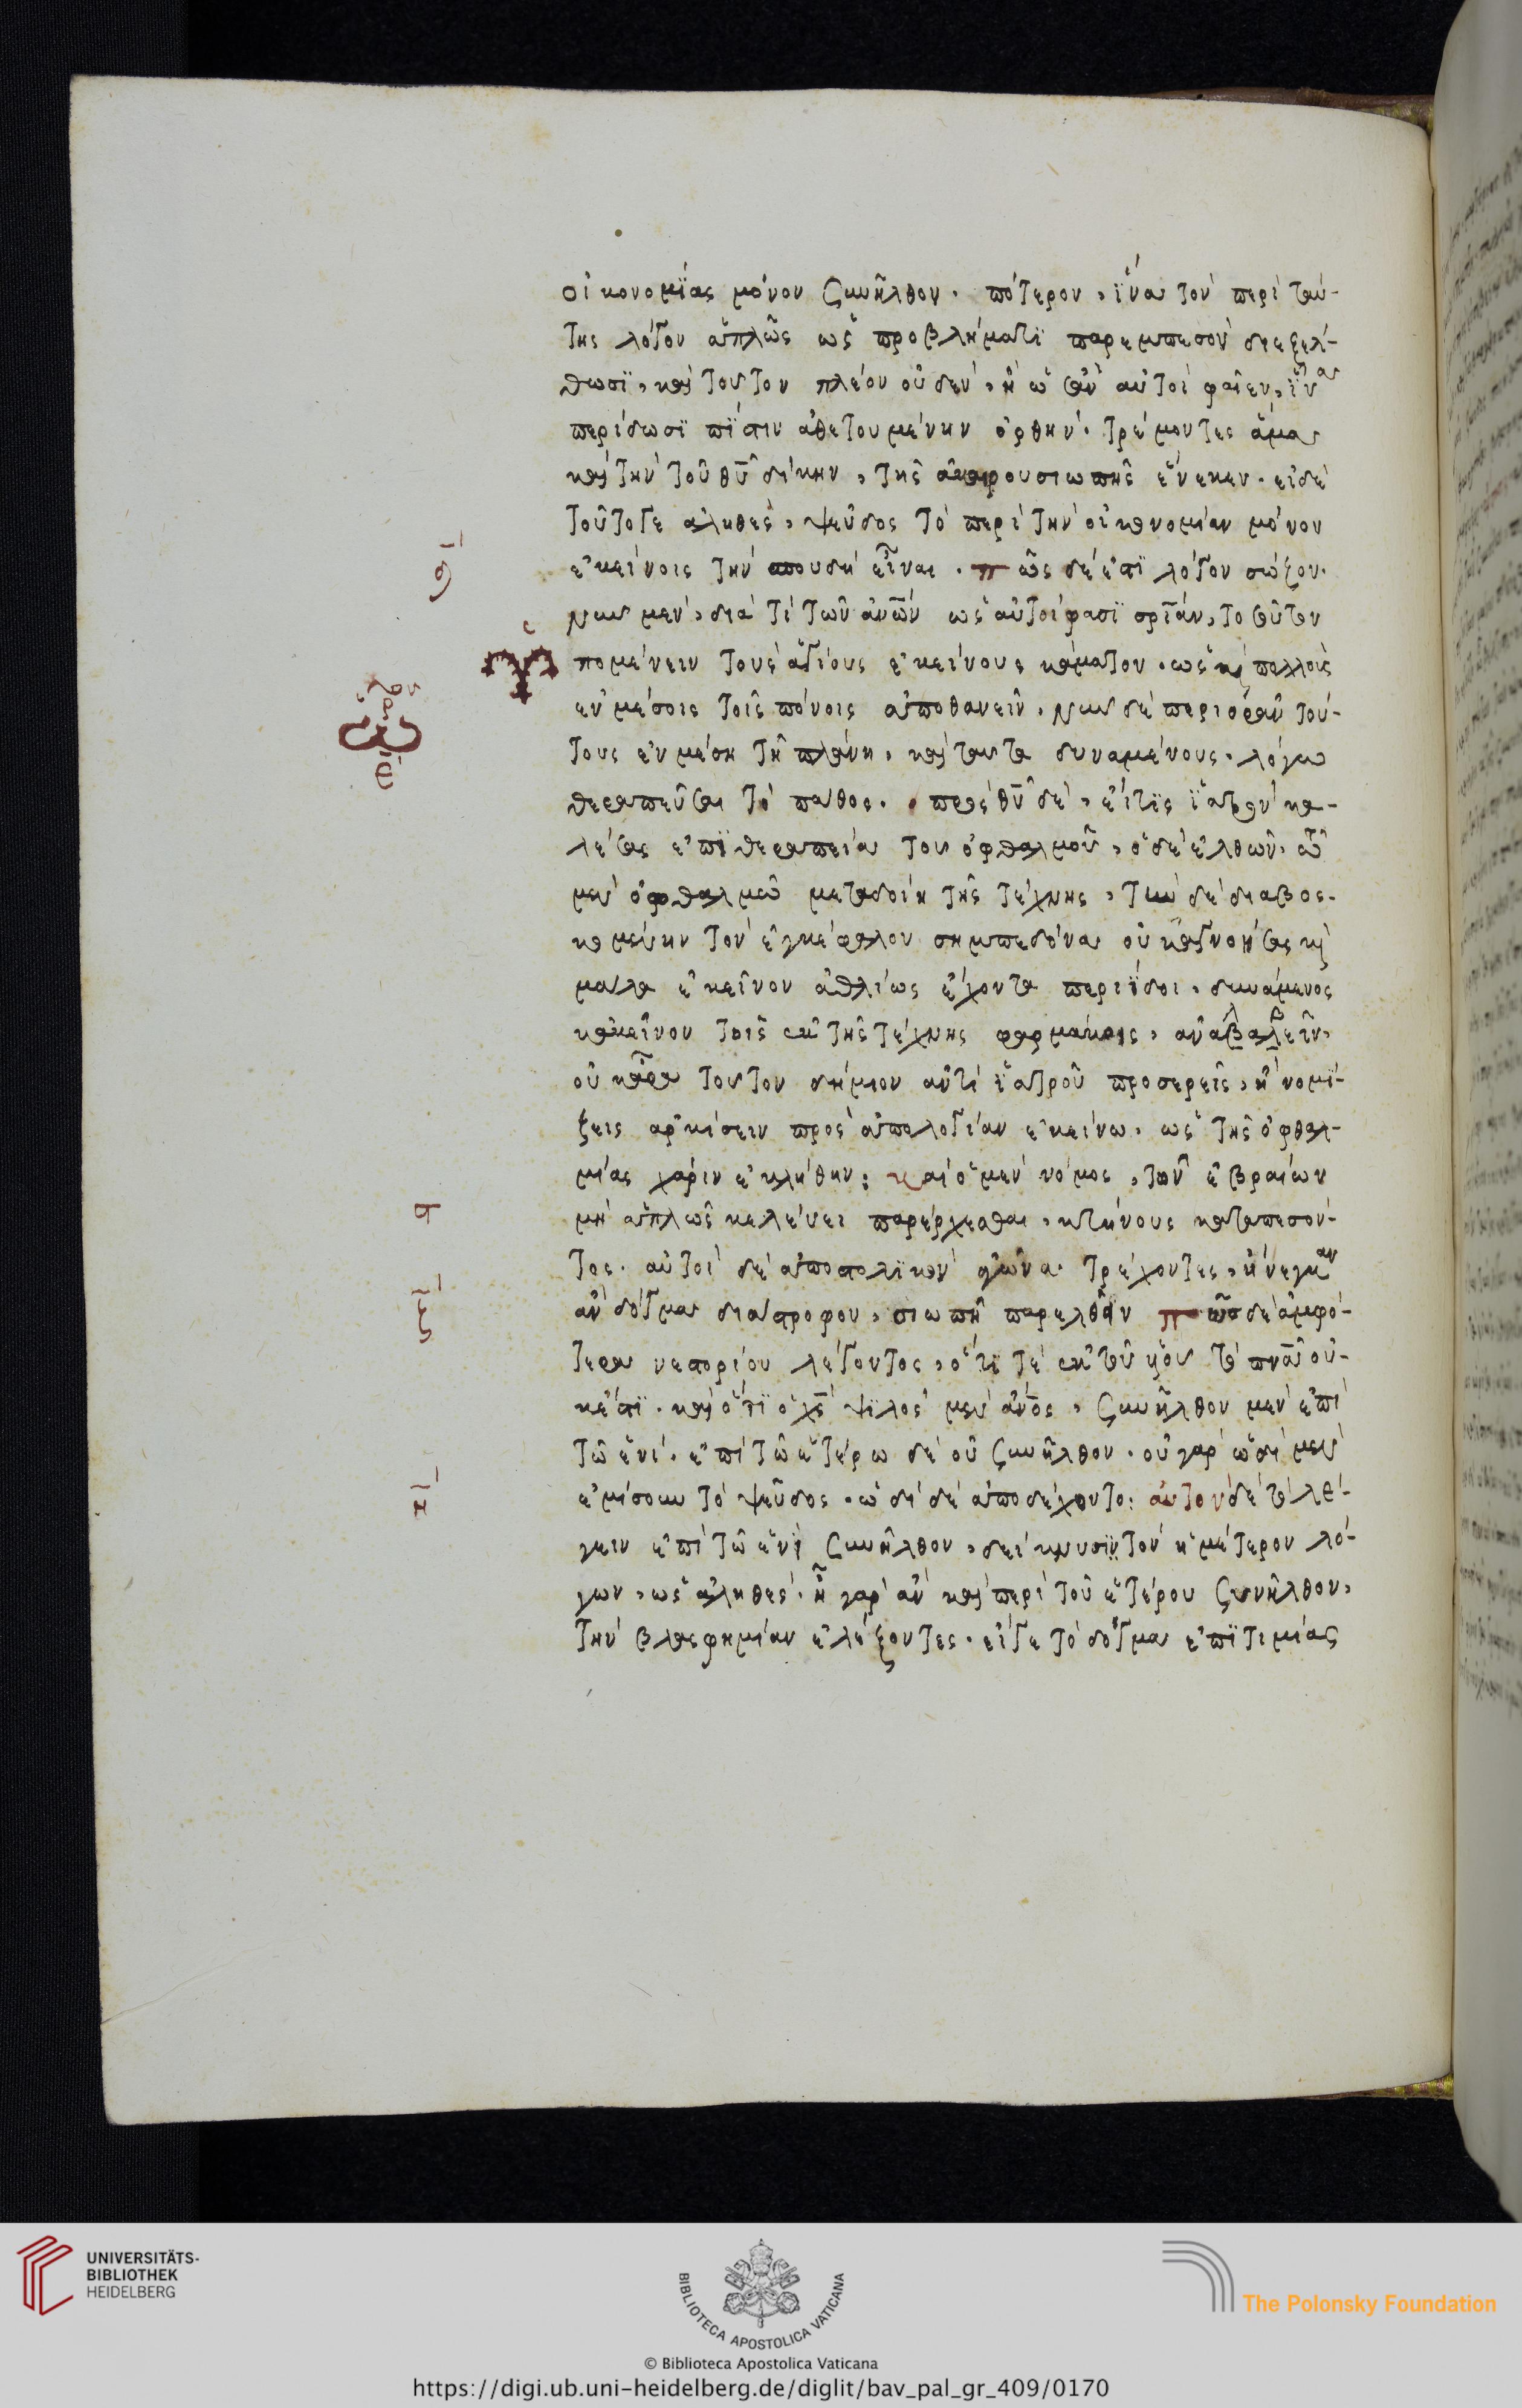 οἰκονομΐας μόνον ζυνῆλθον. πότερον, ἵνα τὸν περὶ ταύ-
της λόγον ἁπλῶς ὡς προβλήματϊ παρεμπεσὸν διεξελ-
θωσϊ, καὶ τούτον πλέον οὐδὲν, ἢ ὡς ἂν αὐτοὶ φαῖεν, ἵνα
περιΐδωσϊ πΐστιν ἀθετουμένην ὀρθὴν. τρέμοντες ἅμα
καὶ τὴν τοῦ θῦ δίκην, τῆς σιωπῆς ἕνεκεν. εἰ δὲ
τοῦτό γε ἀληθὲς, ψεῦδος τὸ περὶ τὴν οἰκονομίαν μόνον
ἐκείνοις τὴν σπουδὴ εἶναι. πῶς δέ ἐστϊ λόγον σώζον.
νῦν μὲν, διὰ τὶ τῶν ὡς αὐτοί φασϊ τοσοῦτον
πομένειν τοὺς ἁγίους ἐκείνους κάματον. ὡς καὶ πολλοὺς
ἐν μέσοις τοῖς πόνοις ἀποθανεῖν. νῦν δὲ περιορᾶν τού-
τους ἐν μέση τῆ πλάνη, καὶ ταῦτα δυναμένους, λόγω
θεραπεῦσαι τὸ πάθος. πρὸς θῦ δὲ, εἴ τϊς ἰατρὸν κα-
λέσας ἐπῒ θεραπεία τοῦ ὀφθαλμοῦ, ὁ δὲ ἐλθὼν, τῶ
μὲν ὀφθαλμῶ μεταδοίη τῆς τέχνης, τὴν δὲ διαβος-
κομένην τὸν ἐγκέφαλον σηπεδόνα οὐ κατανοήσας καὶ
μάλα ἐκεῖνον ἀθλίως ἔχοντα περιΐδοι, δυνάμενος
κἀκεῖνον τοῖς ἐκ τῆς τέχνης φαρμάκοις, ἀναλαβεῖν,
οὐκ ἄρα τοῦτον δήμιον ἀντὶ ἰατροῦ προσερεῖς, ἢ νομΐ-
ζεις ἀρκέσειν πρὸς ἀπολογίαν ἐκείνω, ὡς τῆς ὀφθαλ-
μίας χάριν ἐκλήθην; καὶ ὁ μὲν νόμος, τῶν ἑβραίων
μὴ ἁπλῶς κελεύει παρέρχεσθαι, κτήνους καταπεσόν-
τος. αὐτοὶ δὲ ἀποστολϊκὸν ἀγῶνα τρέχοντες, ἤνεγκαν
ἂν δόγμα διάστροφον, σιωπῆ παρελθεῖν πῶς δὲ ἀμφό-
τερα νεστορίου λέγοντος, ὅτϊ τὲ ἐκ τοῦ υἱοῦ τὸ πνᾶ οὐ-
κ ἔστϊ. καὶ ὅτϊ ὁ χς ψϊλὸς μὲν ἄνος, ζυνῆλθον μὲν ἐπὶ
τῶ ἑνὶ. ἐπὶ τῶ ἑτέρω δὲ οὐ ζυνῆλθον. οὐ γὰρ ὡδὶ μὲν
ἐμίσουν τὸ ψεῦδος. ὡδὶ δὲ ἀποδέχοντο: αὐτὸ δὲ τὸ λέ-
γειν ἐπὶ τῶ ἑνῒ ζυνῆλθον, δείκνυσϊν τὸν ἡμέτερον λό-
γων, ὡς ἀληθές. ἦ γὰρ ἂν καὶ περὶ τοῦ ἑτέρου ζυνῆλθον,
τὴν βλασφημίαν ἐλέγξοντες. εἴ γε τὸ δόγμα ἐπϊτιμίας
UNIVERSITÄTS-
BIBLIOTHEK
HEIDELBERG
BIBLIOTECA APOSTOLICA VATICANA
The Polonsky Foundation
© Biblioteca Apostolica Vaticana
https://digi.ub.uni-heidelberg.de/diglit/bav_pal_gr_409/0170